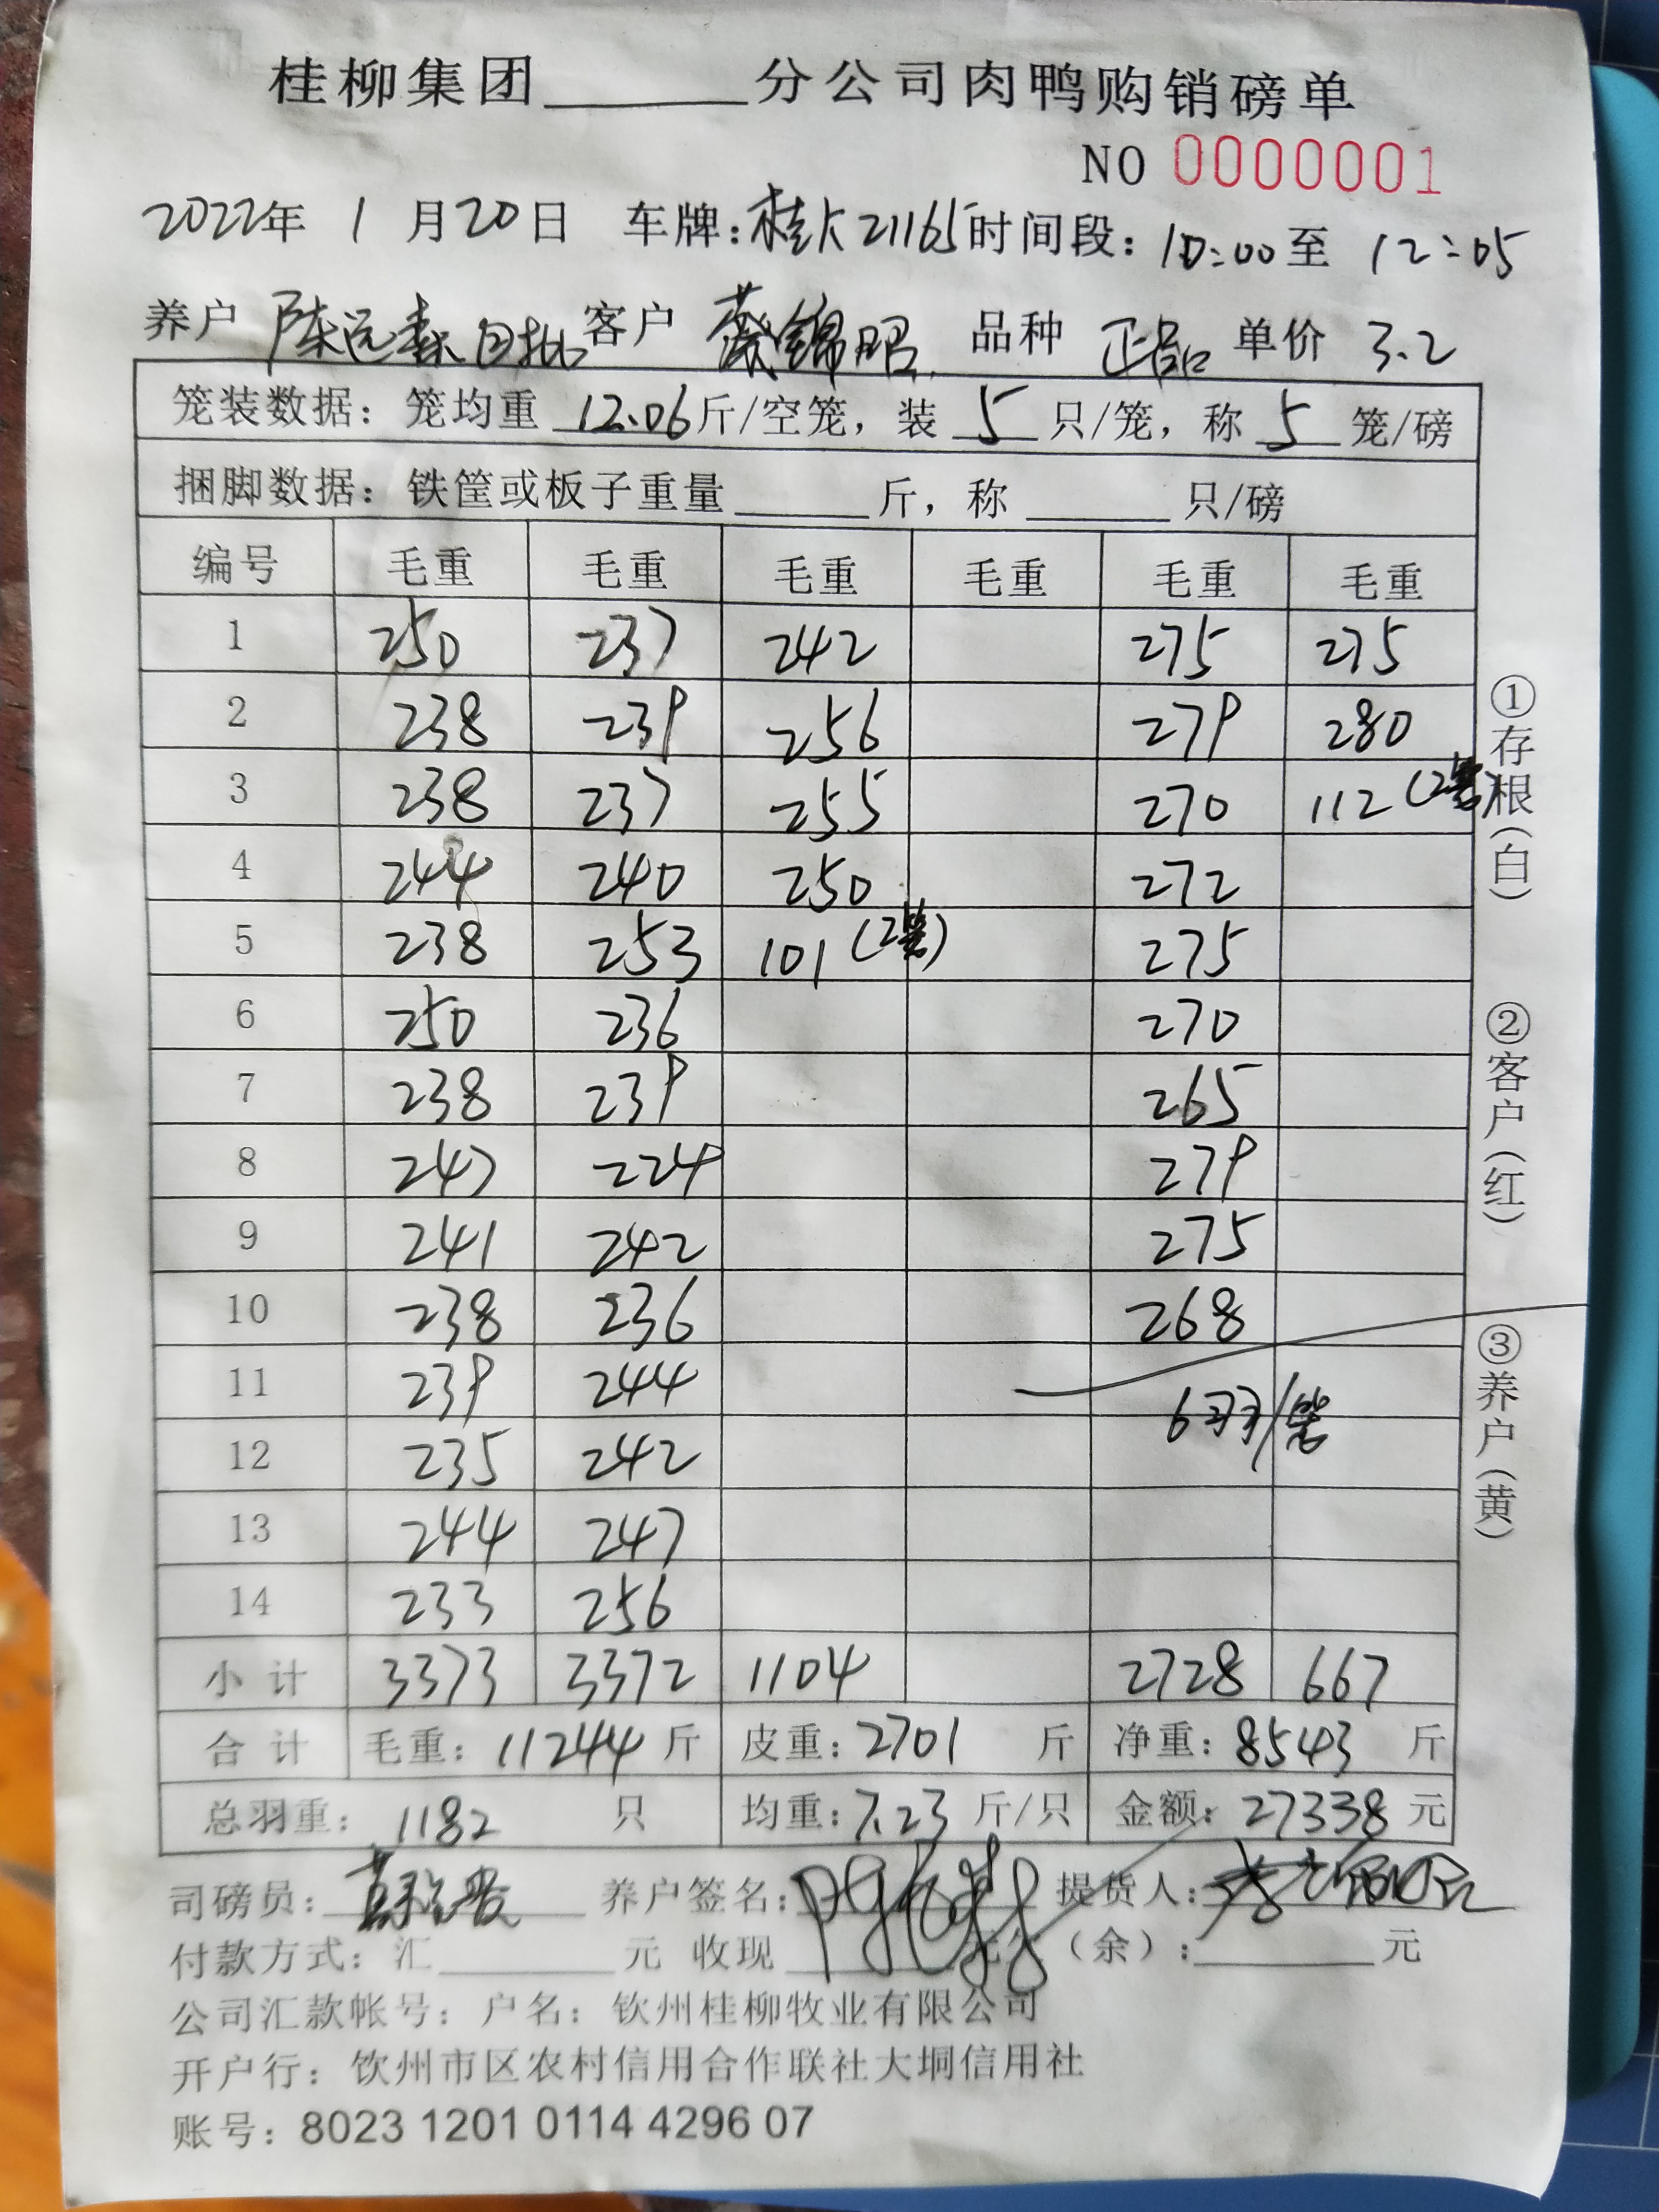 桂柳集团______分公司肉鸭购销磅单
NO 0000001
2022年 1 月20日 车牌:桂K21165时间段:10:00至 12:05
养户 陈远森自批 客户 锦昭 品种 正品 单价 3.2
笼装数据:笼均重 12.06斤/空笼,装 5 只/笼,称 5 笼/磅
捆脚数据:铁筐或板子重量______斤,称______只/磅
编号 毛重 毛重 毛重 毛重 毛重 毛重
1 250 237 242 275 275
2 238 239 256 279 280
3 238 237 255 270 112(2笼)
4 244 240 250 272
5 238 253 101(2笼) 275
6 250 236 270
7 238 239 265
8 247 224 279
9 241 242 275
10 238 236 268
11 239 244
6羽/笼
12 235 242
13 244 247
14 233 256
小计 3373 3372 1104 2728 667
合计 毛重:11244斤 皮重:2701 斤 净重:8543 斤
总羽重:1182 只 均重:7.23斤/只 金额:27338元
司磅员: 养户签名: 提货人:
付款方式:汇______元 收现______ (余):______元
公司汇款帐号:户名:钦州桂柳牧业有限公司
开户行:钦州市区农村信用合作联社大垌信用社
账号:8023 1201 0114 4296 07
①存根(白)
②客户(红)
③养户(黄)